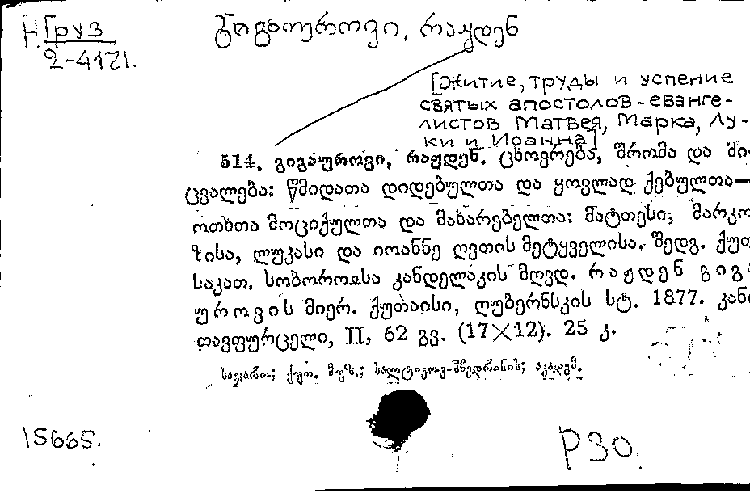 Н. Груз
2-4171.
გიგაუროვი, რაჟდენ
[Житие, труды и успение
святых апостолов-еванге-
листов Матвея, Марка, Лу-
ки и Иоанна]
514. გიგაუროვი, რაჟდენ. ცხოვრება, შრომა და მი-
ცვალება: წმიდათა დიდებულთა და ყოვლად ქებულთა—
ოთხთა მოციქულთა და მახარებელთა: მატთესი, მარკო-
ზისა, ლუკასი და იოანნე ღვთის მეტყველისა. შედგ. ქუთ
საკათ. სობოროისა კანდელაკის მღვდ. რაჟდენ გიგა
უროვის მიერ. ქუთაისი, ღუბერნსკის სტ. 1877. კანი
თავფურცელი, II, 62 გვ. (17×12). 25 კ.
საჯარო.; ქუთ. მუზ.; სალტიკოვ-შჩედრინის; აკადემ.
15665.
Р30.